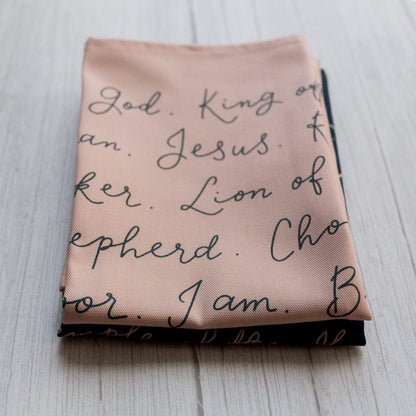 God. King of
an. Jesus. K
ker. Lion of
epherd. Cho
oor. I am. B